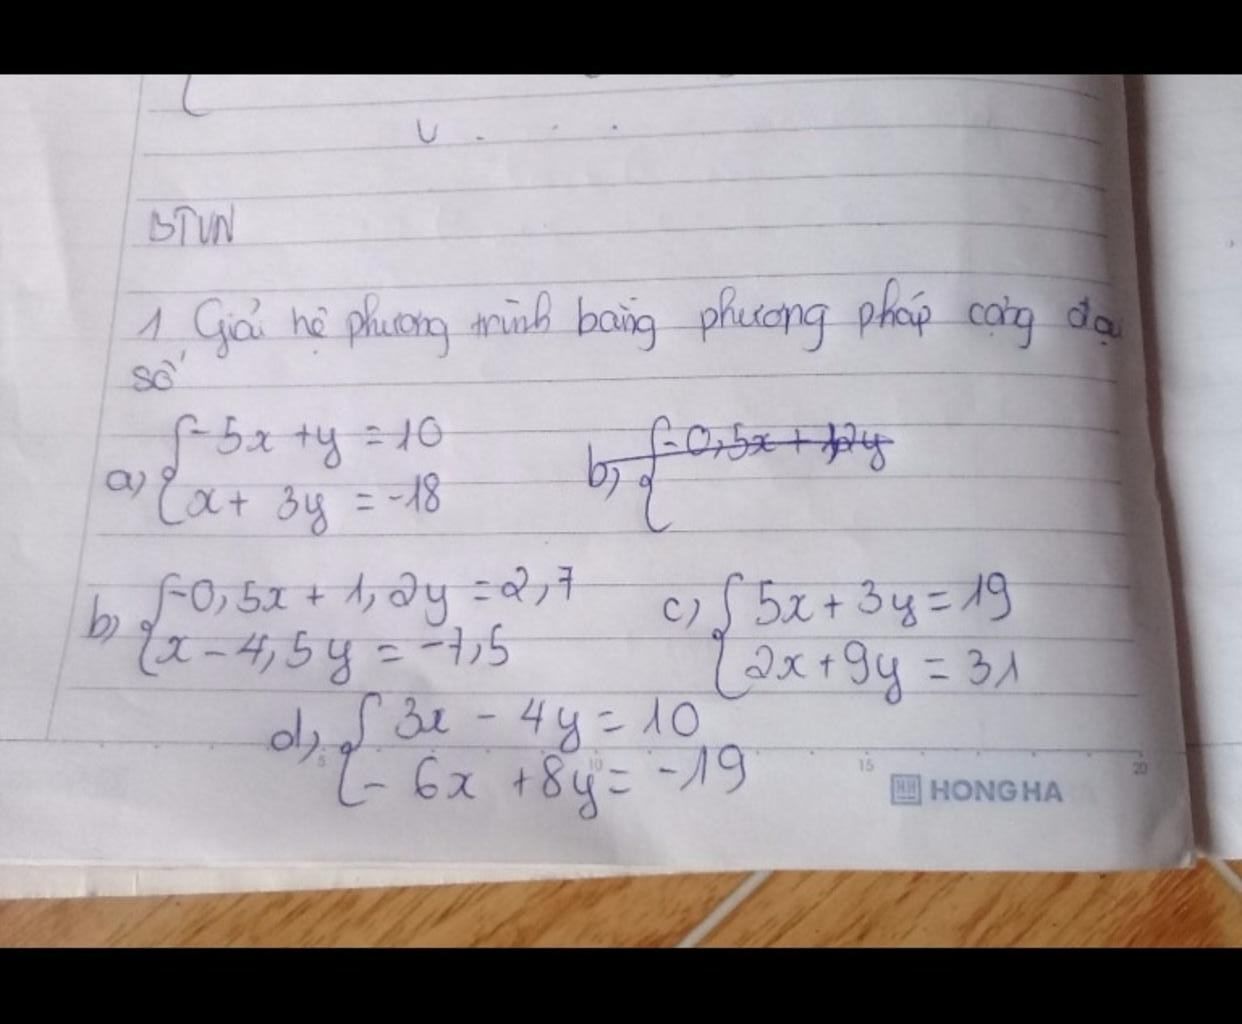 BTVN
1 Giải hệ phương trình bằng phương pháp cộng đại
số
a) { -5x + y = 10
x + 3y = -18
b) { -0,5x + 1,2y
b) { -0,5x + 1,2y = 2,7
x - 4,5y = -7,5
c) { 5x + 3y = 19
2x + 9y = 31
d) { 3x - 4y = 10
- 6x + 8y = -19
5 10 15 20
HH HONG HA